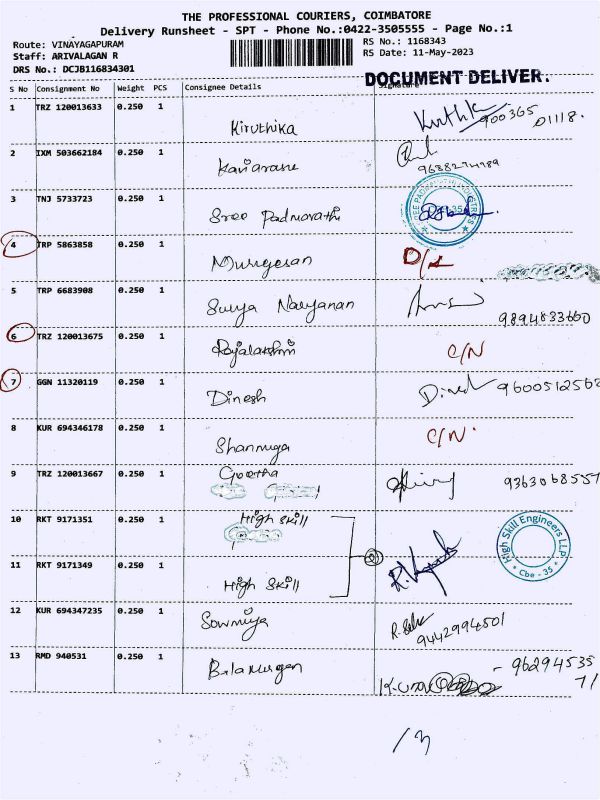 THE PROFESSIONAL COURIERS, COIMBATORE
Delivery Runsheet - SPT - Phone No.:0422-3505555 - Page No.:1
Route: VINAYAGAPURAM RS No.: 1168343
Staff: ARIVALAGAN R RS Date: 11-May-2023
DRS No.: DCJB116834301
DOCUMENT DELIVER.
S No Consignment No Weight PCS Consignee Details Signature
1 TRZ 120013633 0.250 1
Kiruthika 900365
01118.
2 IXM 503662184 0.250 1
Kaviarasu
3 TNJ 5733723 0.250 1
Sree Padmavathi
4 TRP 5863858 0.250 1
Murugesan D/L
5 TRP 6683908 0.250 1
Surya Narayanan 9894833660
6 TRZ 120013675 0.250 1
Rajalakshmi C/N
7 GGN 11320119 0.250 1
Dinesh Dinesh 9600512562
8 KUR 694346178 0.250 1
Shanmuga C/N.
9 TRZ 120013667 0.250 1 Geetha
9363068557
10 RKT 9171351 0.250 1 High Skill
High Skill Engineers LLP
Cbe - 35
11 RKT 9171349 0.250 1
High Skill
12 KUR 694347235 0.250 1
Sowmiya
9442994501
13 RMD 940531 0.250 1
Balamurugan - 96294535
71
/13